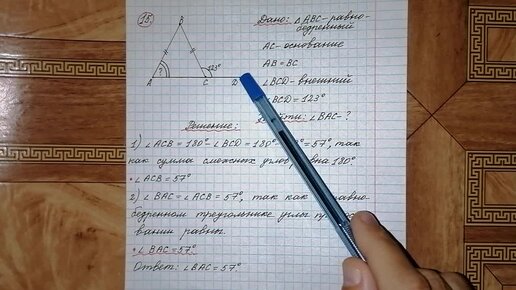 15
B
A
?
C
123°
D
Дано: △ABC-равно-
бедренный
AC-основание
AB=BC
∠BCD-внешний
∠BCD=123°
Найти: ∠BAC-?
Решение:
1) ∠ACB=180°-∠BCD=180° =57°, так
как сумма смежных углов равна 180°
∠ACB=57°
2) ∠BAC=∠ACB=57°, так как
бедренном треугольнике углы
вании равны.
∠BAC=57°
Ответ: ∠BAC=57°